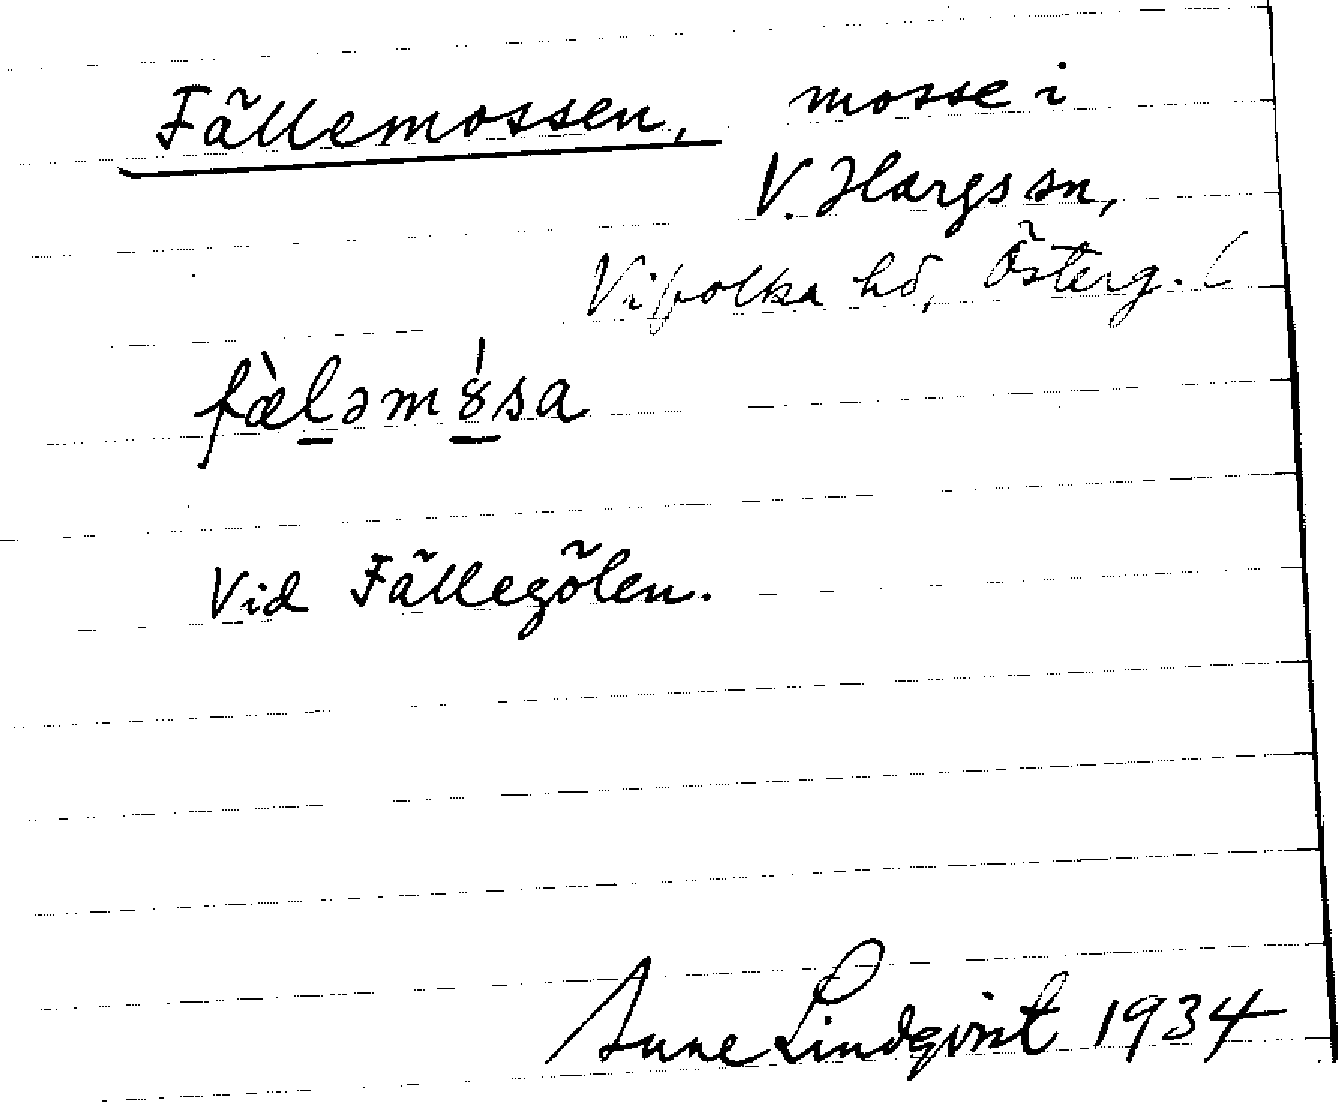 Fällemossen, mosse i
V. Hargs sn,
Vifolka hd, Österg. (
fæ̀ləm8́sa
Vid Fällegölen.
Sune Lindqvist 1934